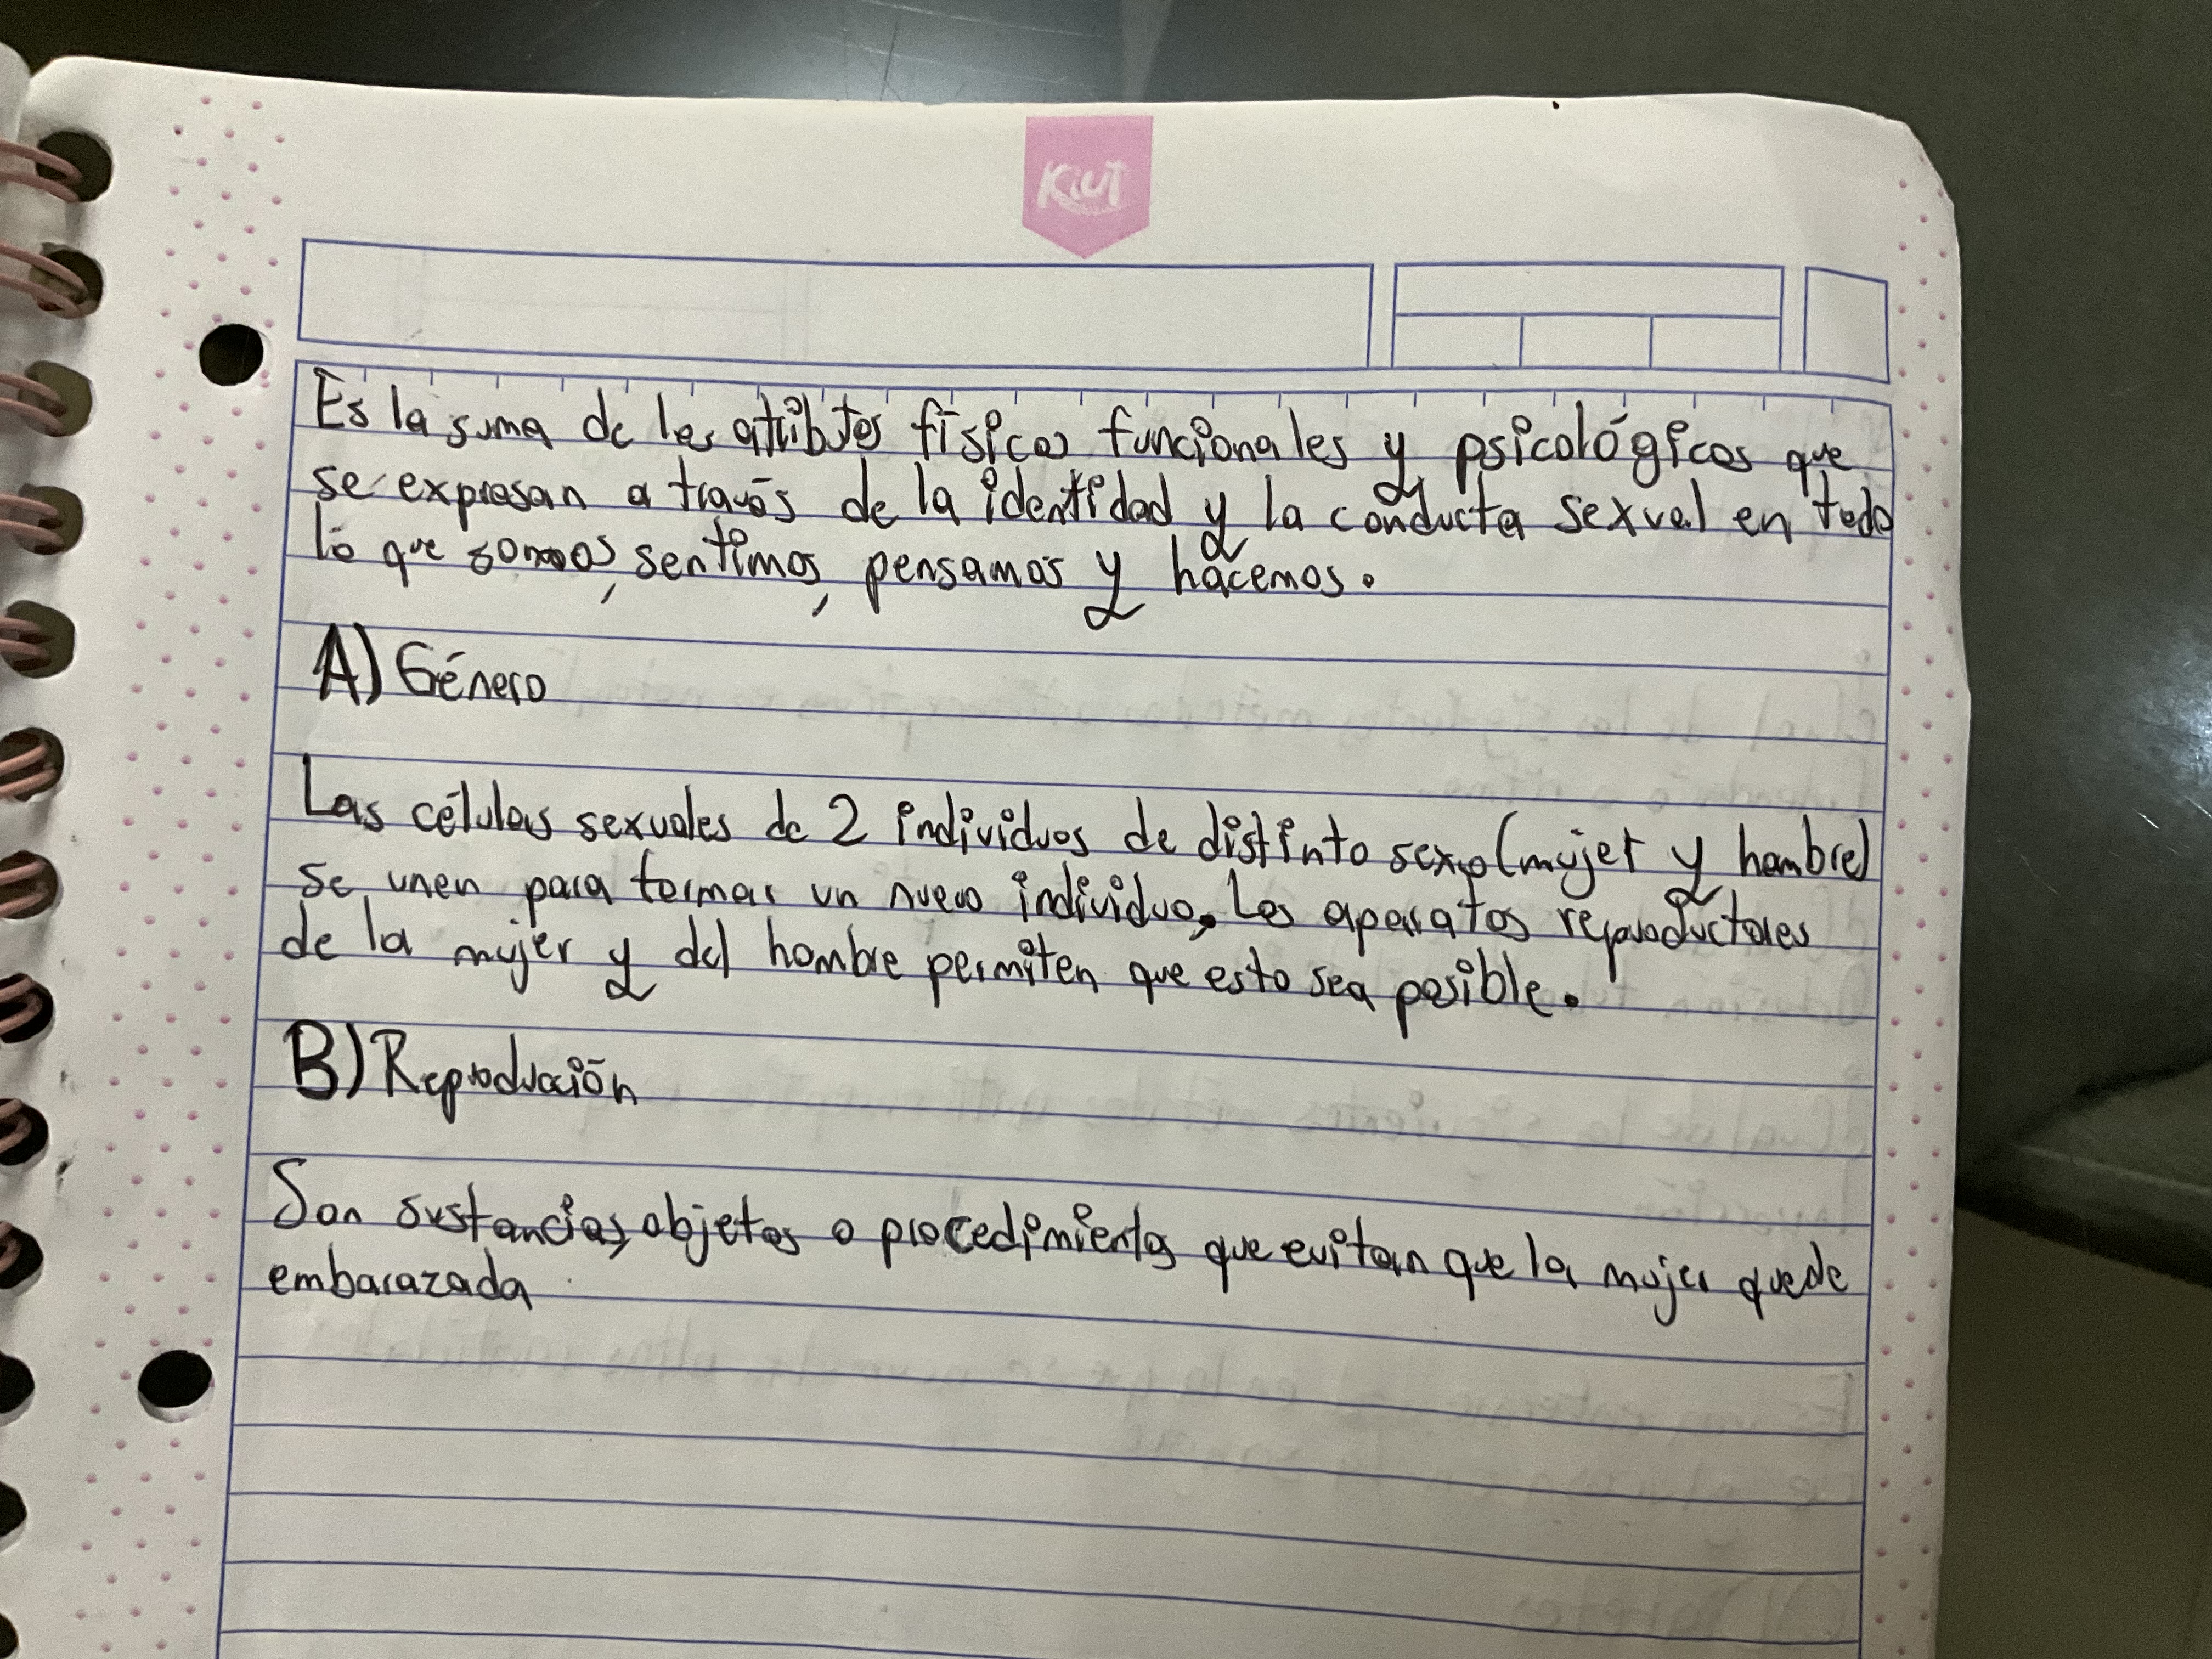 Kiut
Es la suma de los atributos físicos funcionales y psicológicos que
se expresan a través de la identidad y la conducta sexual en todo
lo que somos, sentimos, pensamos y hacemos.
A) Género
Las células sexuales de 2 individuos de distinto sexo (mujer y hombre)
se unen para formar un nuevo individuo. Los aparatos reproductores
de la mujer y del hombre permiten que esto sea posible.
B) Reproducción
Son sustancias, objetos o procedimientos que evitan que la mujer quede
embarazada